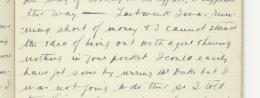 this way — Last week I was run-
ning short of money & I cannot stand
the idea of being out with a girl & having
nothing in your pocket. I could easily
have got some by wiring Mr Duke but I
was not going to do this so I told